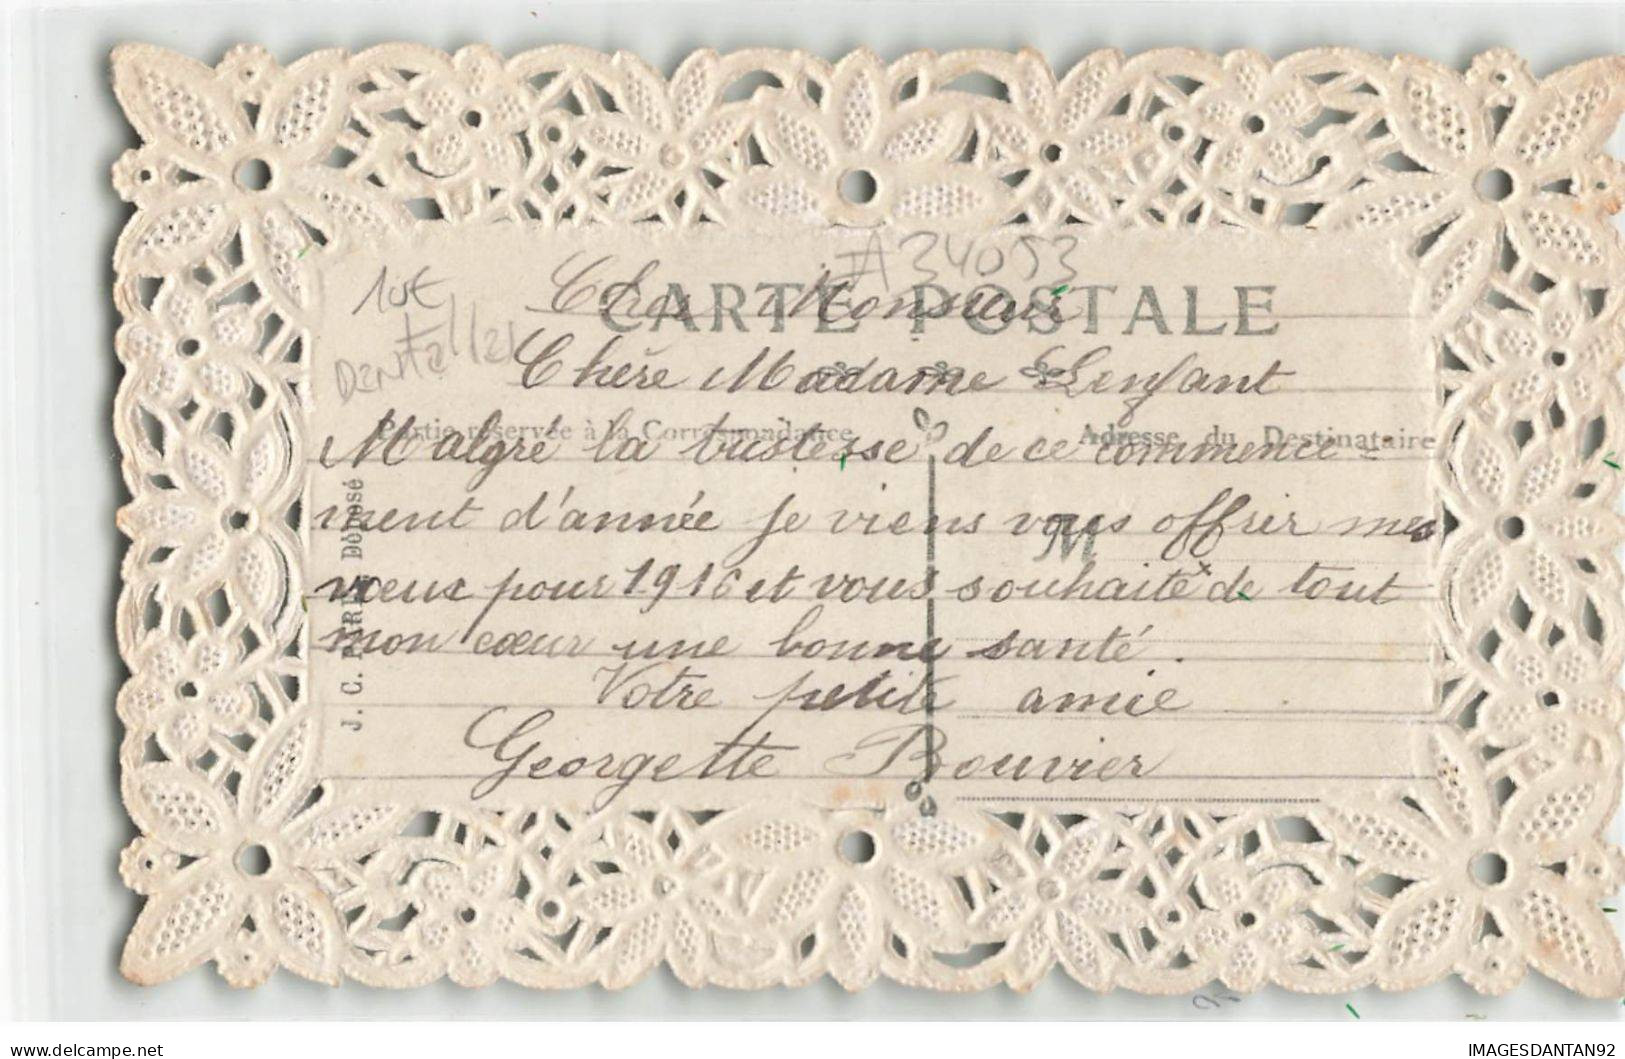 A34053
10€
Dentelles
CARTE POSTALE
Cher Monsieur
Chère Madame Lenfant
Partie réservée à la Correspondance
Adresse du Destinataire
Malgré la tristesse de ce commence=
ment d'année je viens vous offrir mes
M
vœux pour 1916 et vous souhaite de tout
mon cœur une bonne santé.
Votre petite amie
Georgette Bouvier
J. C. PARIS Déposé
delcampe.net
IMAGESDANTAN92